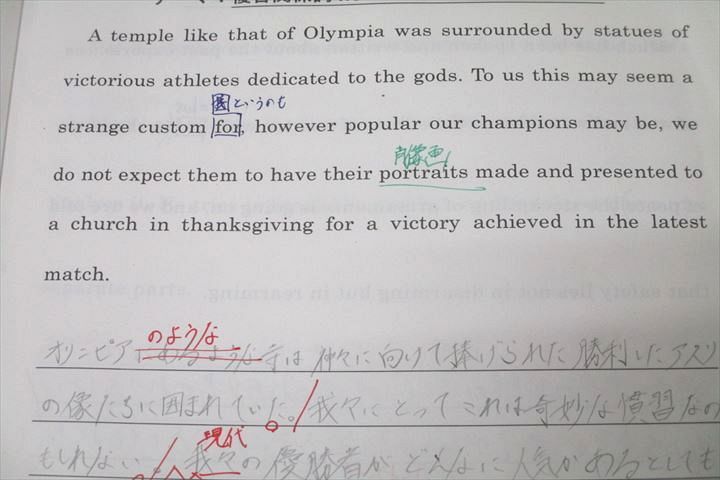 A temple like that of Olympia was surrounded by statues of
victorious athletes dedicated to the gods. To us this may seem a
というのも
strange custom for, however popular our champions may be, we
肖像画
do not expect them to have their portraits made and presented to
a church in thanksgiving for a victory achieved in the latest
match.
のような
オリンピアにあるような寺は神々に向けて捧げられた勝利したアスリ
の像たちに囲まれていた。我々にとってこれは奇妙な慣習なの
現代
もしれない。我々の優勝者がどんなに人気があるとしても